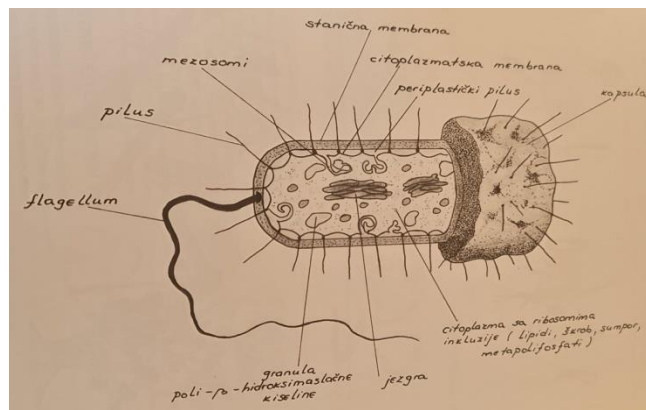 stanična membrana
mezosomi
citoplazmatska membrana
periplastički pilus
kapsula
pilus
flagellum
citoplazma sa ribosomima
inkluzije (lipidi, škrob, sumpor,
metapolifosfati)
granula
poli-β-hidroksimaslačne
kiseline
jezgra